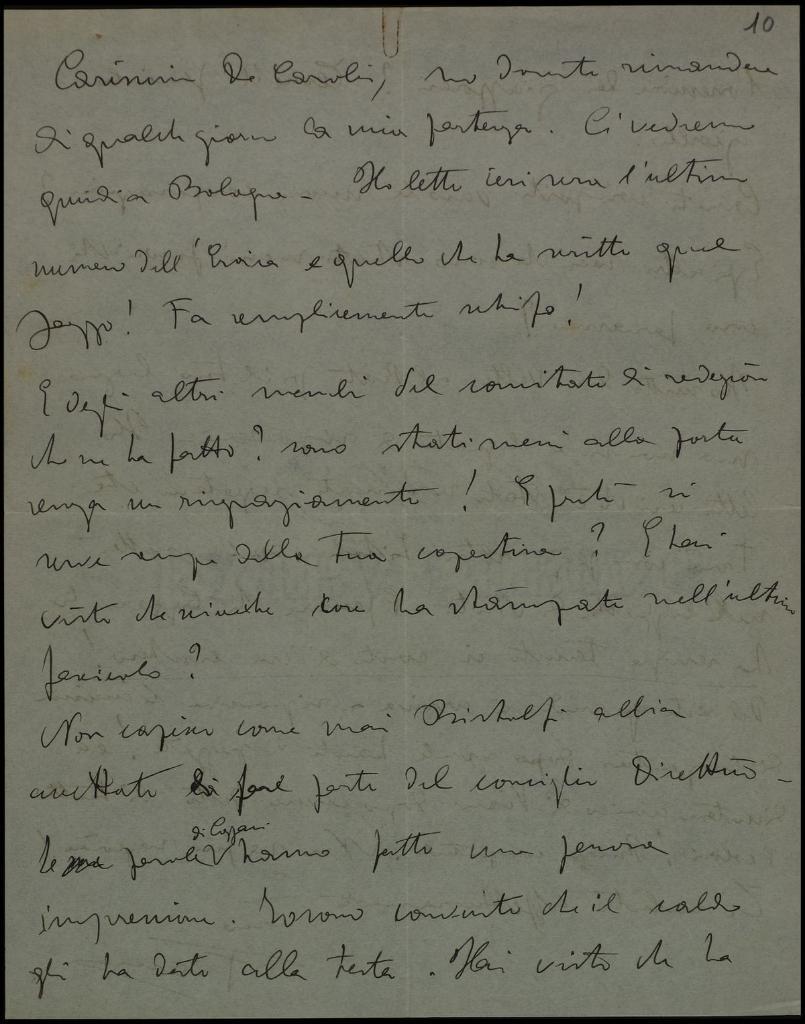 10
Carissimo De Carolis, ho dovuto rimandare
di qualche giorno la mia partenza. Ci vedremo
quindi a Bologna – Ho letto ieri sera l'ultimo
numero dell'Eroica e quello che ha scritto quel
pazzo! Fa semplicemente schifo!
E degli altri membri del comitato di redazione
che ne ha fatto? sono stati messi alla porta
senza un ringraziamento! E perché si
serve sempre della tua copertina? E hai
visto che xilografie ha stampate nell'ultimo
fascicolo?
Non capisco come mai Bistolfi abbia
accettato di far parte del consiglio Direttivo –
le parole di Cozzani hanno fatto una penosa
impressione. Io sono convinto che il caldo
gli ha dato alla testa. Hai visto che ha